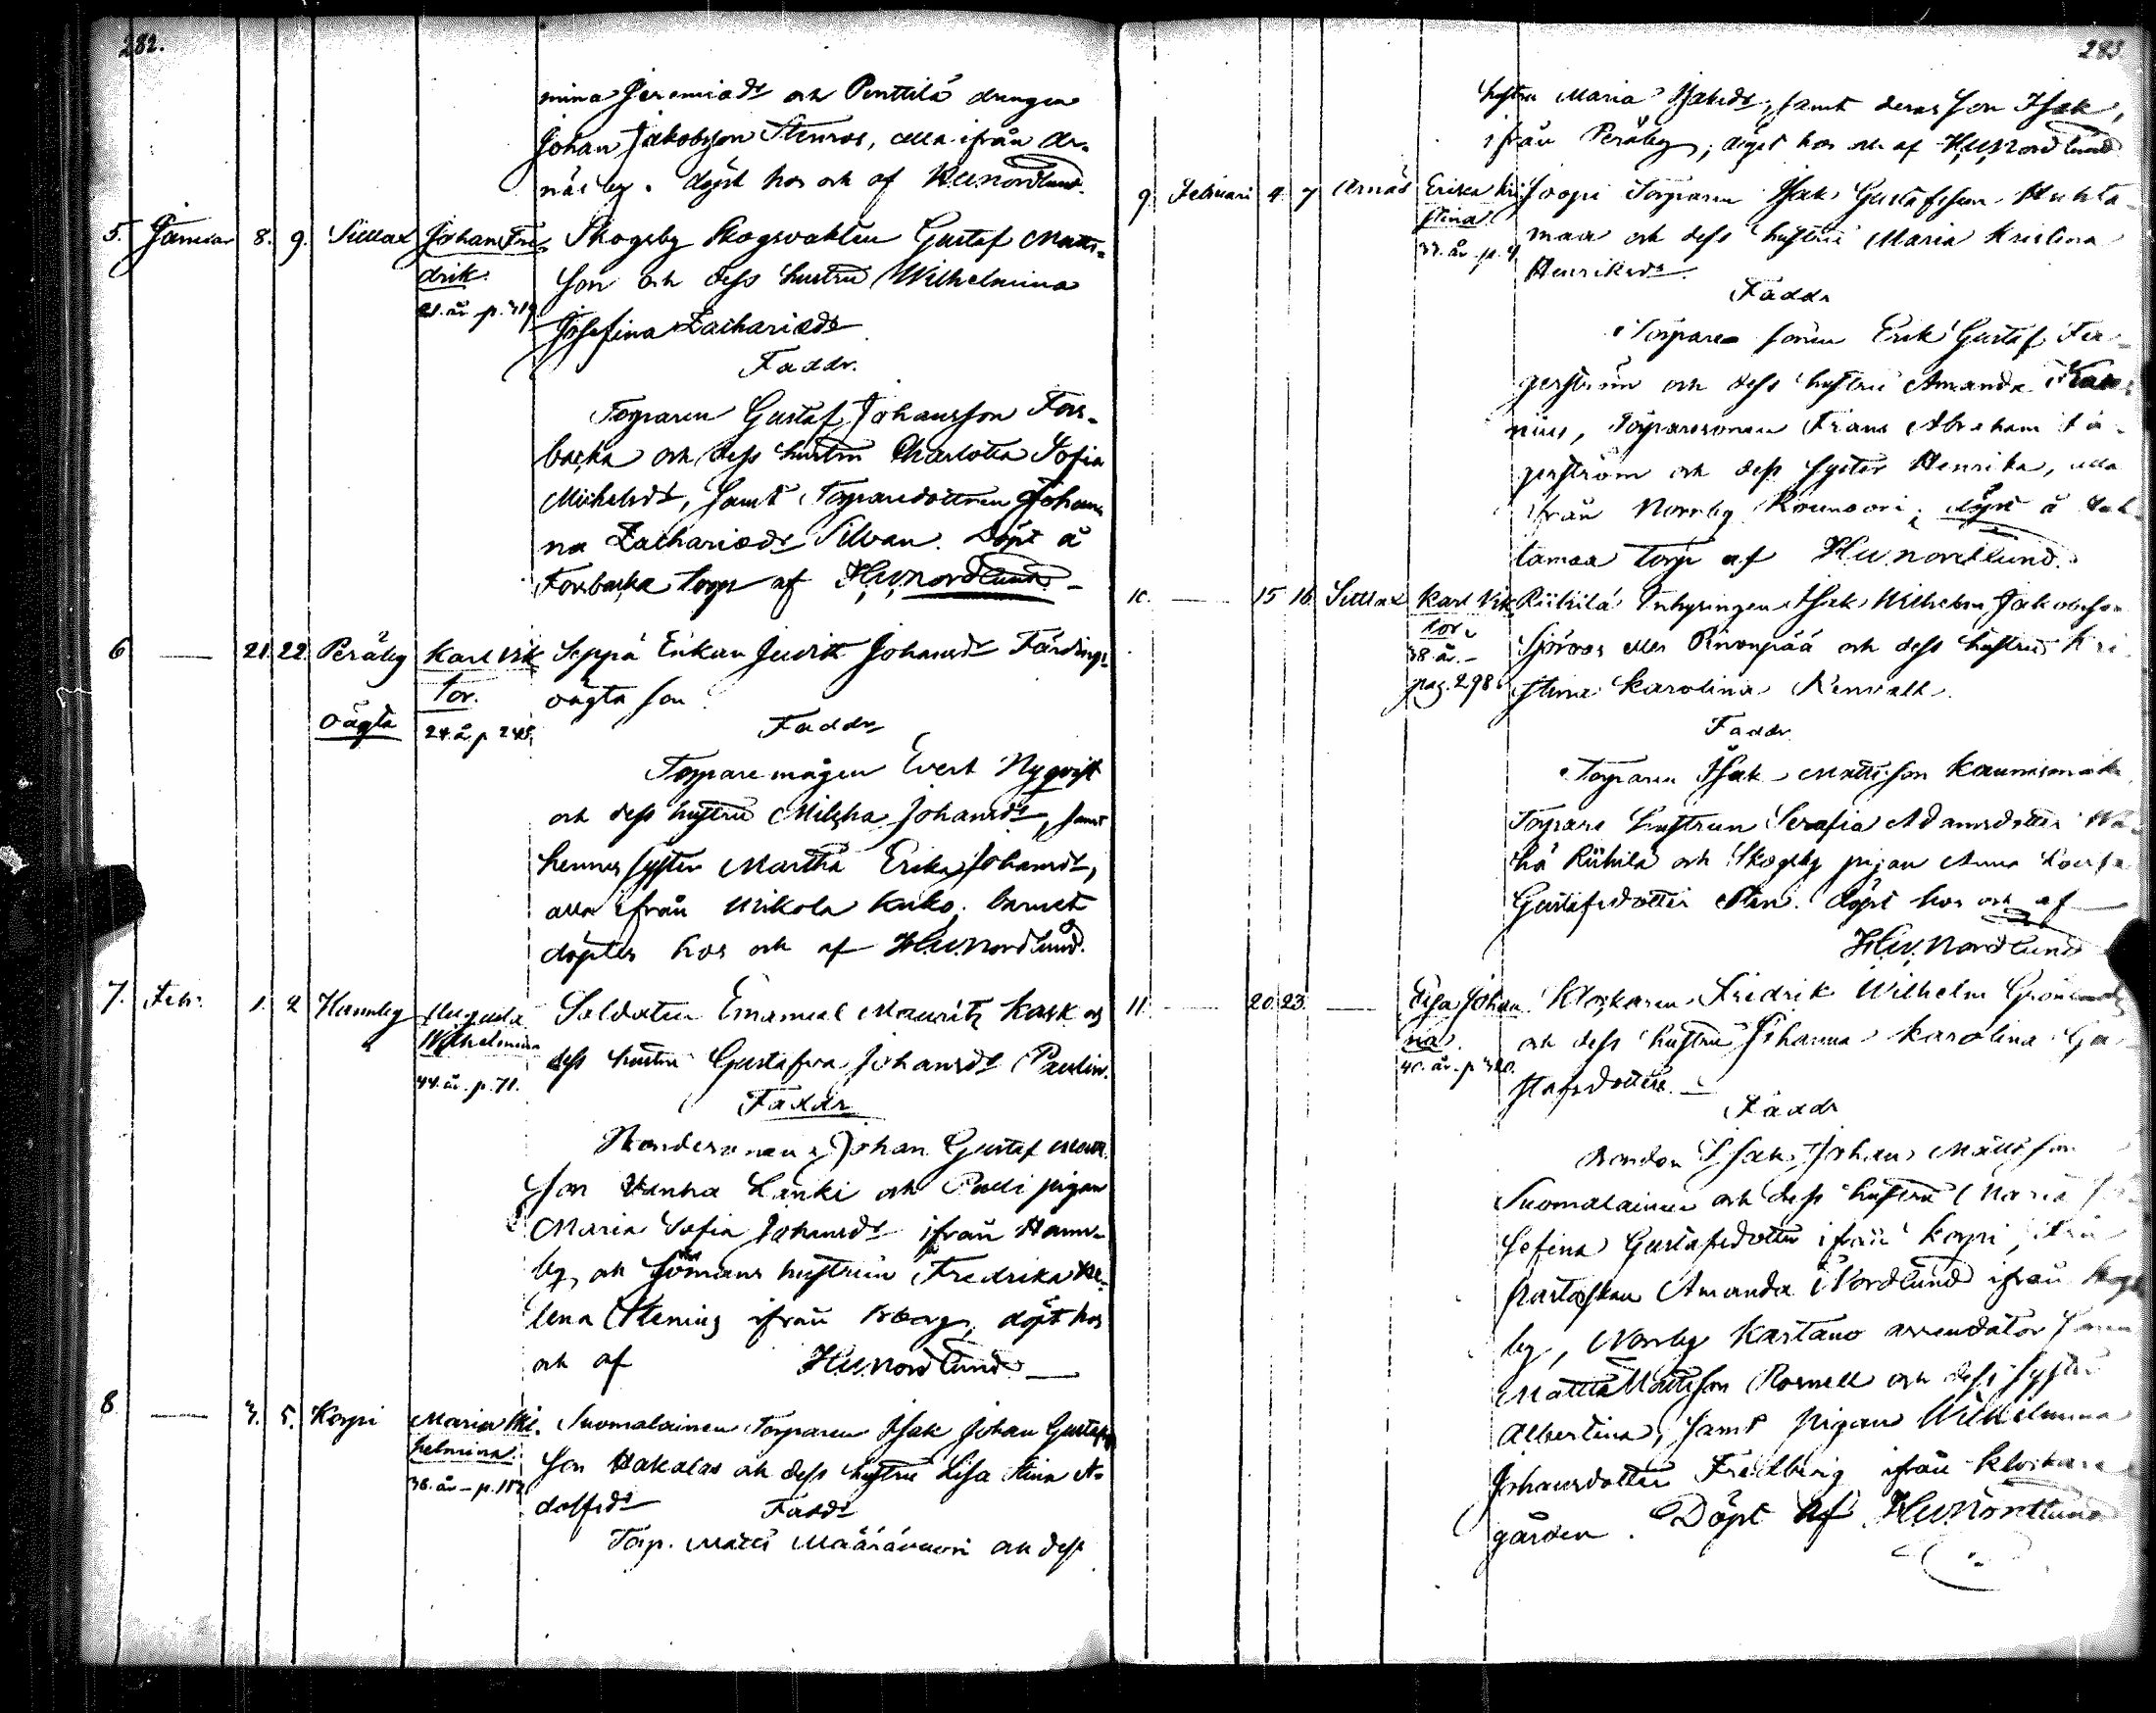 282.
mina Jeremiæds och Penttilä drengen
Johan Jakobsson Stenros, alla ifrån Ar-
näs by. döpt hos och af H.W.Nordlund.
5. Januar 8. 9. Sillax Johan Fre- Skogsby Skogsvakten Gustaf Matts-
drik. son och dess hustru Wilhelmina
21. år p. 319 Josefina Zachariæds
Faddr.
Torparen Gustaf Johansson Fors-
backa och dess hustru Charlotta Sofia
Michelsdr, samt Torparedottren Johan-
na Zachariæds Silvan. Döpt å
Forsbacka torp af H.W.Nordlund
6 — 21. 22. Peräby Karl Vik Seppä Enkan Judith Johansdr Färdings
tor. oägta son
oägta 24. å. p. 245. Faddr
Torpare mågen Evert Nyqvist
och dess hustru Milcha Johansdr, samt
hennes syster Martha Erika Johansdr,
alla ifrån Mikola Kuko; barnet
döptes hos och af H.W.Nordlund.
7. Febr. 1. 2 Hannby Augusta Soldaten Emanuel Mauritz Kask och
Wilhelmina dess hustru Gustafva Johansdr Paulin.
44. år. p. 71. Faddr
Bondesonen Johan Gustaf Matts
son Vanha Lanki och Pulli pigan
Maria Sofia Johansdr ifrån Hann-
by, och Sjömans hustrun Fredrika He-
lena Stenius ifrån döpt hos
och af H.W.Nordlund —
8 — 3. 5. Korpi Maria Wil- Suomalainen Torparen Isak Johan Gustafs
helmina. son Hakalax och dess hustru Lisa Stina A-
36. år – p. 152 dolfsdr Faddr
Torp. Matts Määrävuori och dess
283.
hustru Maria Isaksdr, samt deras son Isak,
ifrån Peräby; döpt hos och af H.W.Nordlund
9 Februari 4. 7 Arnäs Erika Kri- Joopi Torparen Isak Gustafsson Huhta-
stina maa och dess hustru Maria Kristina
33. år. p. 9 Henriksdr
Faddr
Torpare sonen Erik Gustaf Fa-
gerström och dess hustru Amanda
nius, Torparesonen Frans Abraham Fa-
gerström och dess syster Henrika, alla
ifrån Norrby Rounvori; döpt å Huh-
tamaa Torp af H.W.Nordlund.
10. — 15 16 Sillax Karl Vik Riihilä Inhysingen Isak Wilhelm Jakobsson
tor. Sjöroos eller Rivonpää och dess hustru Kri
38. år. – stina Karolina Renvall.
pag. 298
Faddr
Torparen Isak Mattsson Kaunismäki
Torpare hustrun Serafia Adamsdotter Wä-
hä Riihilä och Skogsby pigan Anna Lovisa
Gustafsdotter Sten. döpt hos och af —
H.W.Nordlund
11. — 20. 23. — Elsa Johan Klockaren Fredrik Wilhelm Grönlund
na. och dess hustru Johanna Karolina Gu
40. år. p. 320. stafsdotter. —
Faddr
Bonden Isak Johan Mattsson
Suomalainen och dess hustru Maria Jo
sefina Gustafsdotter ifrån Korpi,
Amanda Nordlund ifrån Skogs
by, Norrby Kartano arrendator sonen
Matts Mattsson Rosnell och dess syster
Albertina, samt pigan Wilhelmina
Johansdotter Fredberg ifrån Klockare
gården. Döpt af H.W.Nordlund